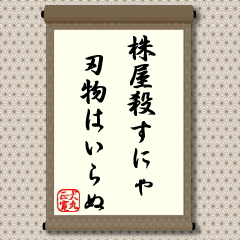 株屋殺すにゃ
刃物はいらぬ